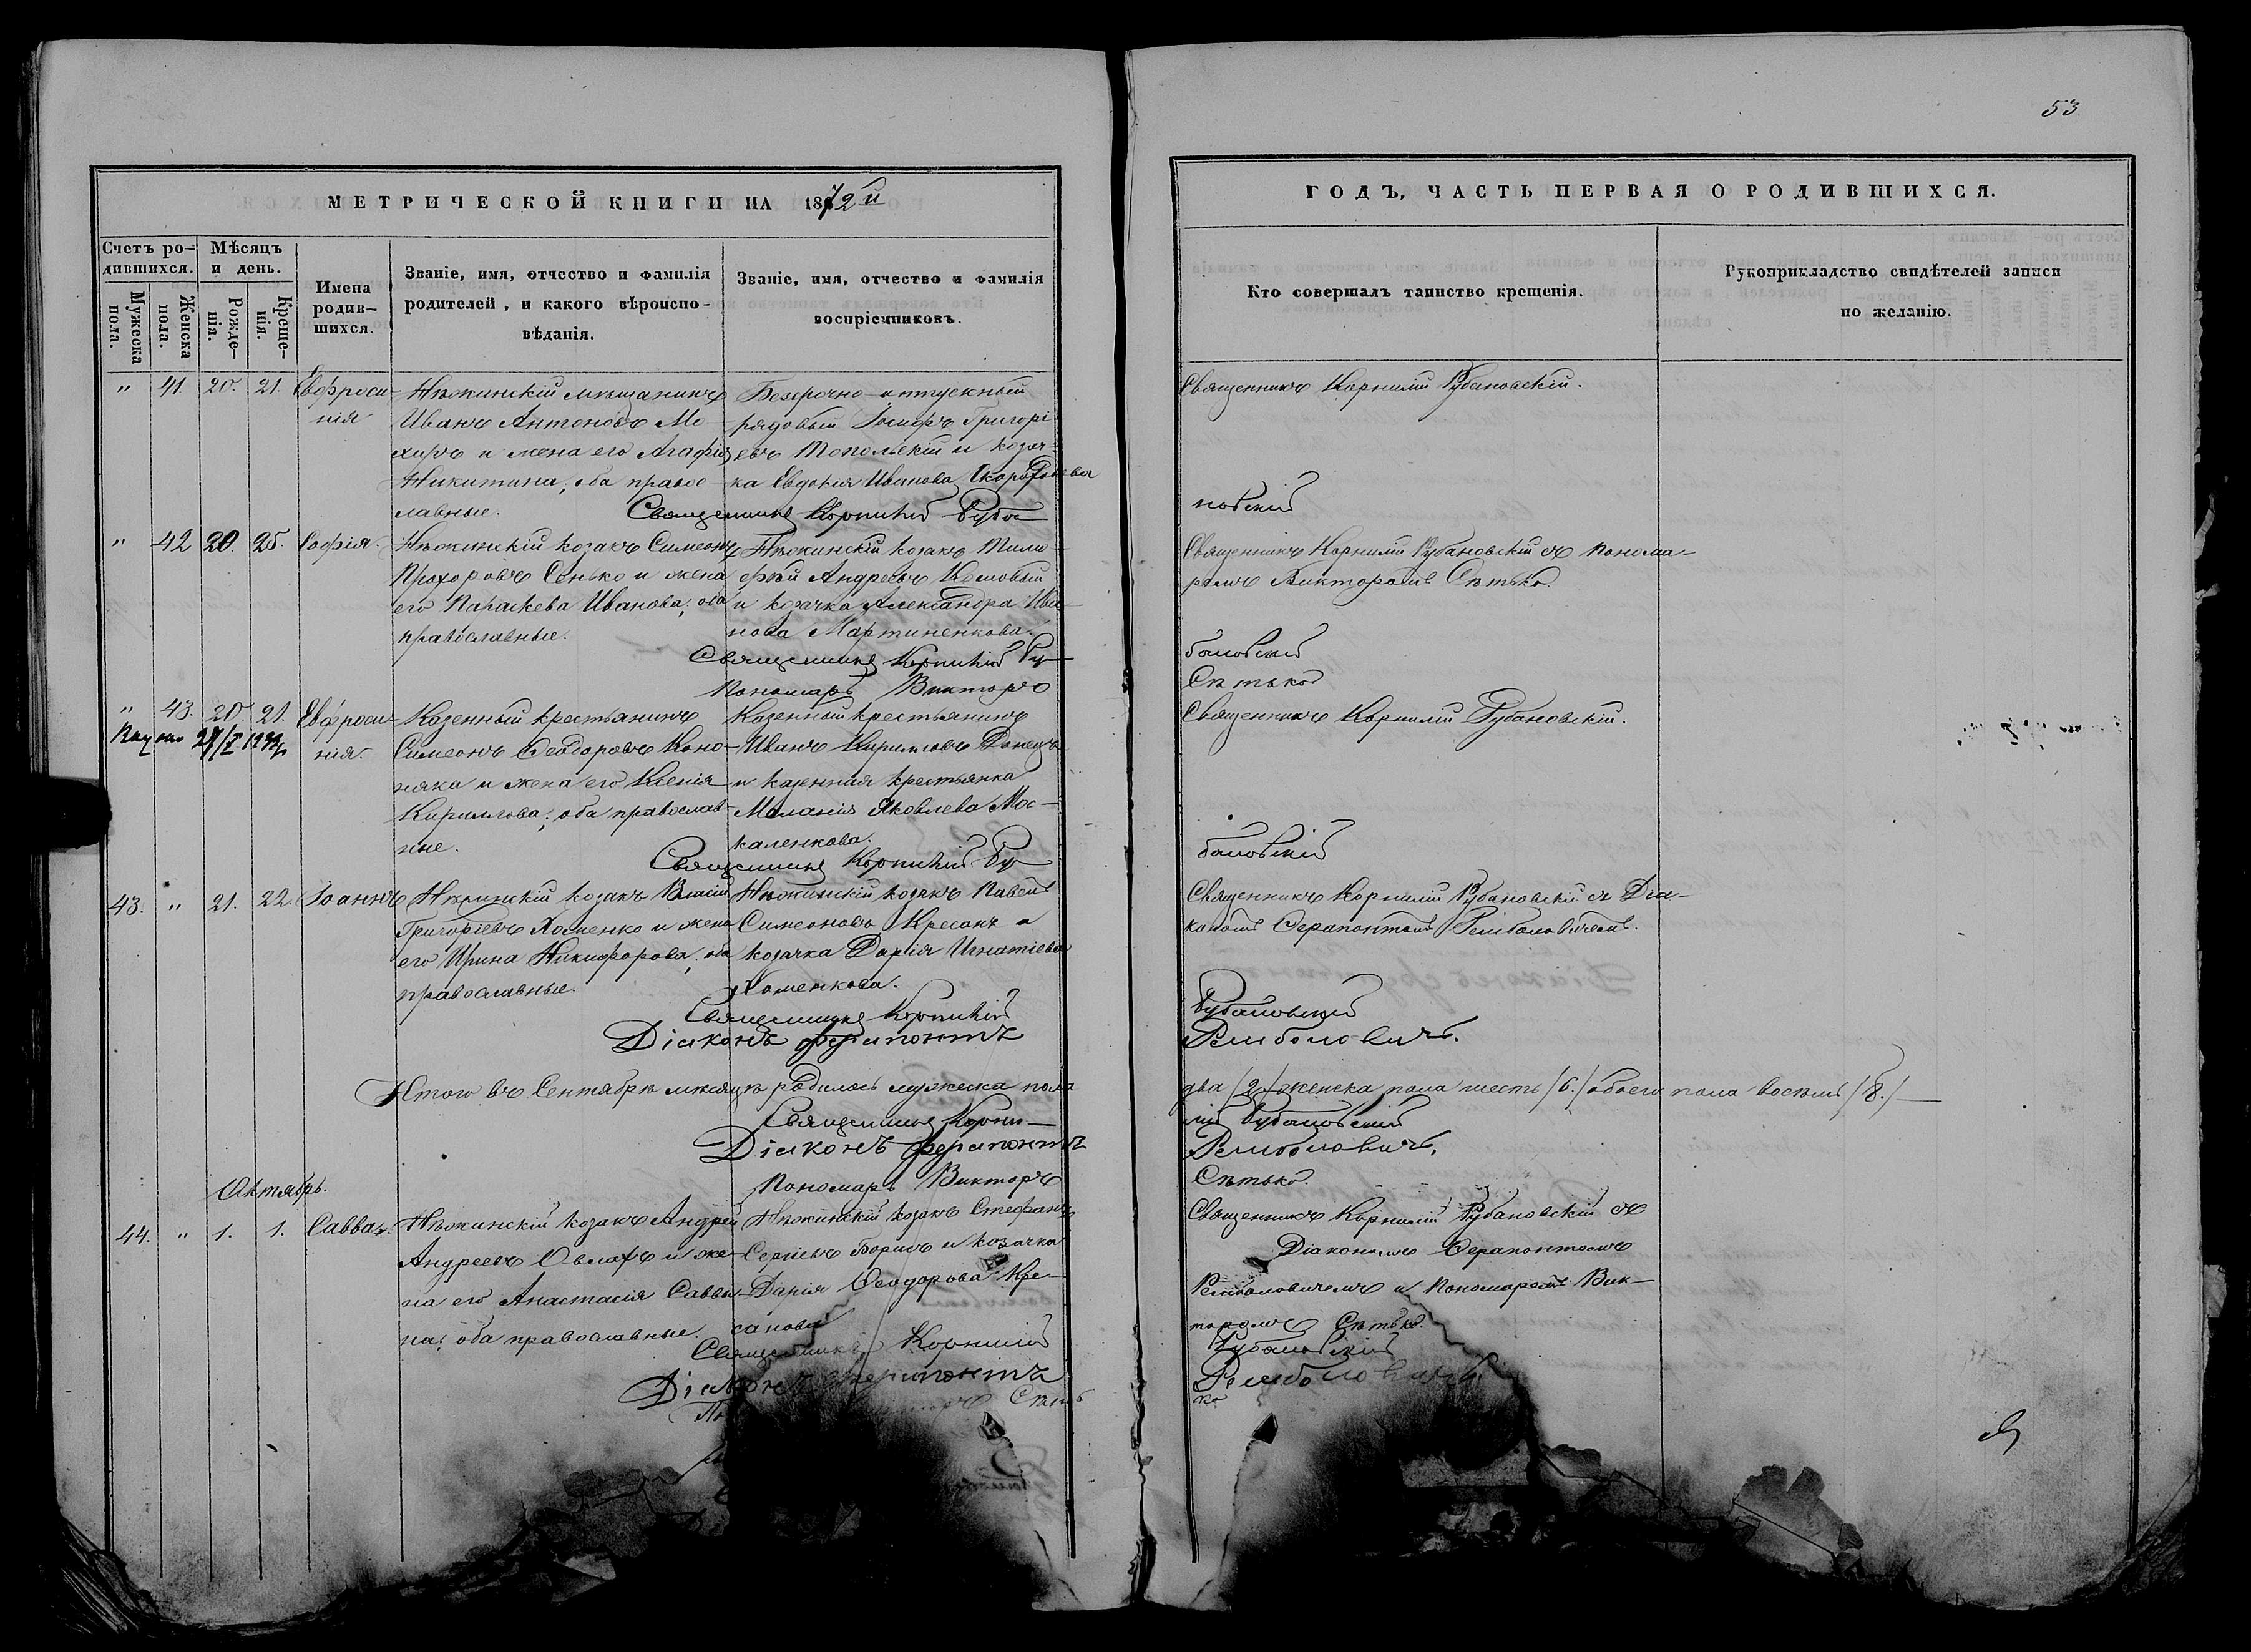 53
МЕТРИЧЕСКОЙ КНИГИ НА 1872й
ГОДЪ, ЧАСТЬ ПЕРВАЯ О РОДИВШИХСЯ.
Счетъ ро-
дившихся.
Мужеска пола.
Женска пола.
Мѣсяцъ
и день.
Рожде-
нія.
Креще-
нія.
Имена
родив-
шихся.
Званіе, имя, отчество и фамилія
родителей, и какого вѣроиспо-
вѣданія.
Званіе, имя, отчество и фамилія
воспріемниковъ.
Кто совершалъ таинство крещенія.
Рукоприкладство свидѣтелей записи
по желанію.
" 41. 20. 21. Евфроси-
нія
Нѣжинскій мѣщанинъ
Иванъ Антоновъ Мо-
хиръ и жена его Агафія
Никитина, оба правос-
лавные.
Безсрочно-отпускный
рядовый Іосифъ Григорі-
евъ Топольскій и козач-
ка Евдокія Иванова
Священникъ Корнилій Рубановскій.
Священникъ Корнилій Руба-
новскій
" 42 20. 25. Софія.
Нѣжинскій козакъ Симеонъ
Прохоровъ Сенько и жена
его Параскева Иванова, оба
православные.
Нѣжинскій козакъ Тимо-
фѣй Андреевъ Кошовый
и козачка Александра Ива-
нова Мартиненкова.
Священникъ Корнилій Рубановскій съ понома-
ремъ Викторомъ Сѣтько.
Священникъ Корнилій Ру-
бановскій
Пономарь Викторъ
Сѣтько
" 43. 20. 21. Евфроси-
нія.
Казенный крестьянинъ
Симеонъ Феодоровъ Коно-
няка и жена его Ксенія
Кириллова, оба православ-
ные.
Казенный крестьянинъ
Иванъ Кирилловъ Донецъ
и казенная крестьянка
Меланія Яковлева Мос-
каленкова.
Священникъ Корнилій Рубановскій.
Священникъ Корнилій Ру-
бановскій
43. " 21. 22. Іоаннъ
Нѣжинскій козакъ Власій
Григоріевъ Хоменко и жена
его Ирина Никифорова, оба
православные.
Нѣжинскій козакъ Павелъ
Симеоновъ Кресанъ и
козачка Дарія Игнатіева
Хоменкова.
Священникъ Корнилій Рубановскій съ Діа-
кономъ Ферапонтомъ Рембаловичемъ.
Священникъ Корнилій
Рубановскій
Діаконъ Ферапонтъ
Рембаловичъ.
Итого въ Сентябрѣ мѣсяцѣ родилось мужеска пола
два /2/ женска пола шесть /6./ обоего пола восемь /8./
Священникъ Корни-
лій Рубановскій
Діаконъ Ферапонтъ
Рембаловичъ.
Пономарь Викторъ
Сѣтько.
Октябрь.
44. " 1. 1. Савва.
Нѣжинскій козакъ Андрей
Андреевъ и же-
на его Анастасія Савви-
на, оба православные.
Нѣжинскій козакъ Стефанъ
Сергіевъ и козачка
Дарія Феодорова Кре-
санова
Священникъ Корнилій Рубановскій съ
Діакономъ Ферапонтомъ
Рембаловичемъ и Пономаремъ Вик-
торомъ Сѣтько.
Священникъ Корнилій
Рубановскій
Діаконъ Ферапонтъ
Рембаловичъ
Сѣть
ко